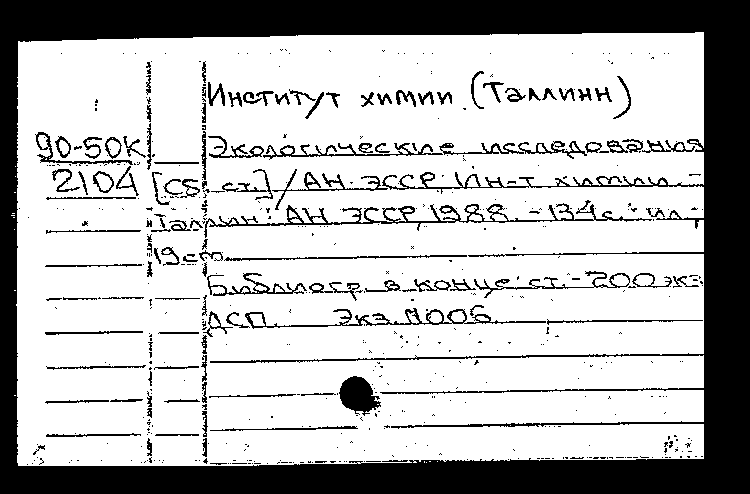 Институт химии (Таллинн)
90-50К Экологические исследования
2104 [Сб. ст.] / АН ЭССР, Ин-т химии. -
Таллин: АН ЭССР, 1988. - 134 с.: ил.;
19 см.
Библиогр. в конце ст. - 200 экз.
ДСП. Экз. N006.